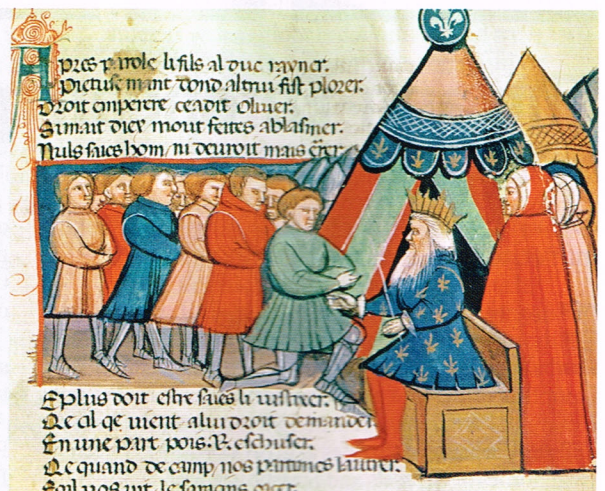 Apres parole li fils al duc rayner.
Pietuse mant dond altrui fist plorer.
Droit emperere ce a dit Oliuer.
Si mait diex mout feites a blasmer.
Nuls saies hom ni deuroit mais
E plus doit estre saies li
Qe cil qe uient a lui droit demander
En une part pois .R. eschuser.
Qe quand de camp nos partimes